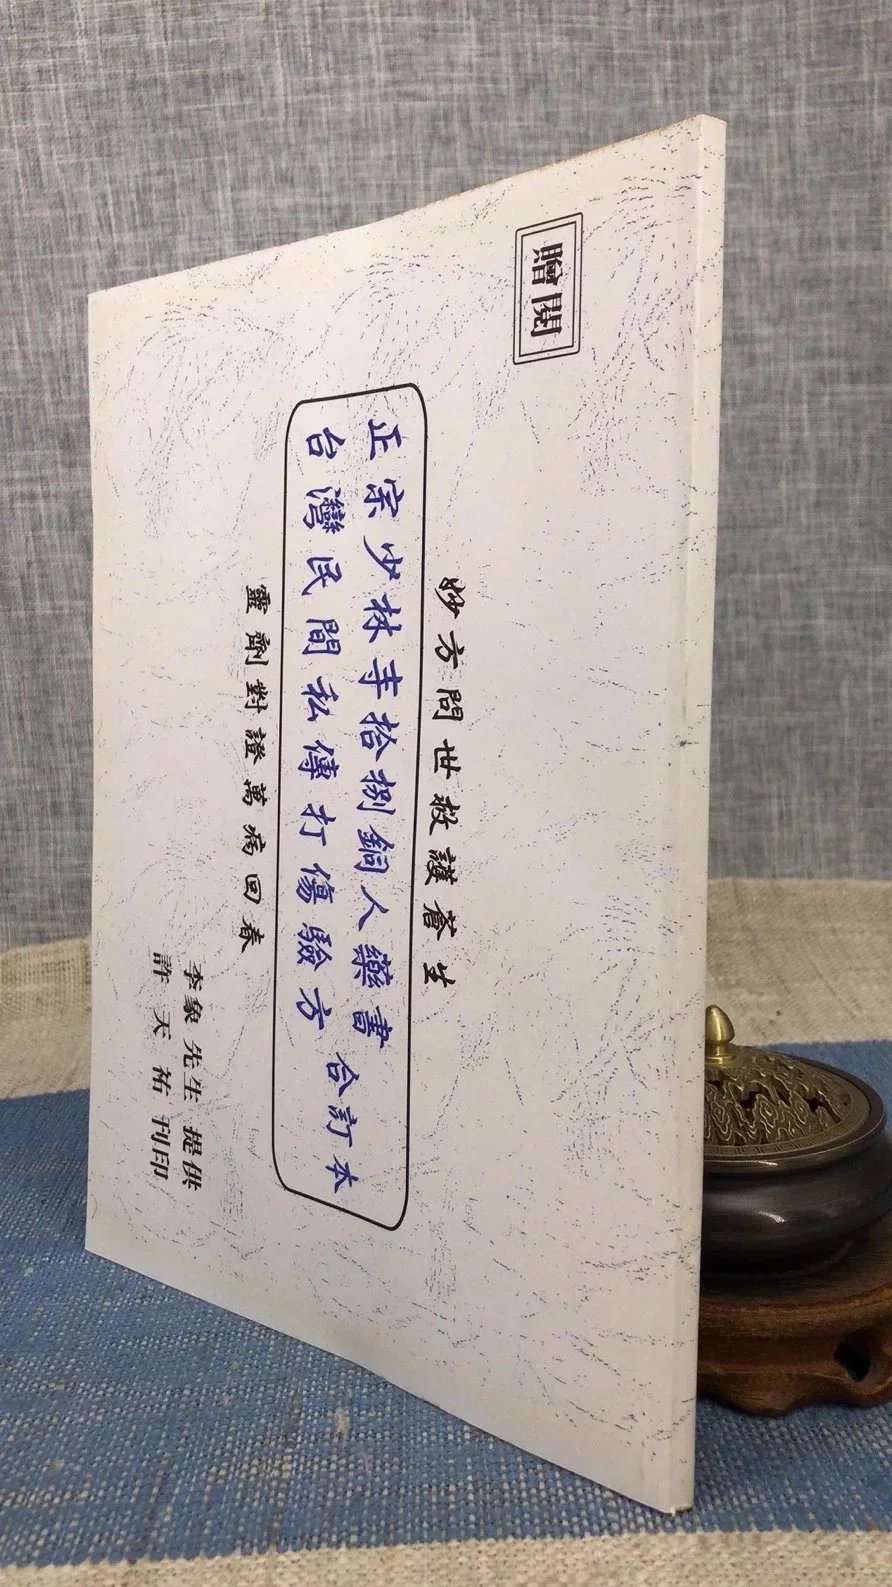 贈閱
妙方問世救護蒼生
正宗少林寺拾捌銅人藥書
台灣民間私傳打傷驗方
合訂本
靈劑對證萬病回春
李象先生 提供
許天祐 刊印